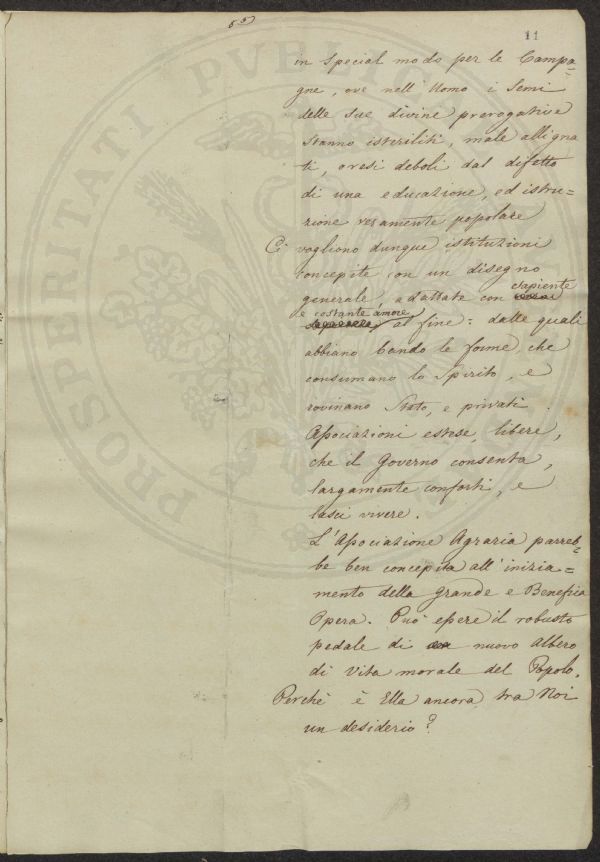 55
11
in special modo per le Campa=
gne, ove nell'Uomo i Semi
delle sue divine prerogative
stanno isteriliti, male alligna
ti, o resi deboli dal difetto
di una educazione, ed istru=
zione veramente popolare
Ci vogliono dunque istituzioni
concepite con un disegno
generale, adattate con sapiente
e costante amore al fine: dalle quali
abbiano bando le forme, che
consumano lo Spirito, e
rovinano Stato, e privati.
Associazioni estese, libere,
che il Governo consenta,
largamente conforti, e
lasci vivere.
L'Associazione Agraria parreb=
be ben concepita all'inizia=
mento della grande e Benefica
Opera. Può essere il robusto
pedale di nuovo Albero
di Vita morale del Popolo.
Perchè è Ella ancora tra Noi
un desiderio?
PROSPERITATI PUBLICAE